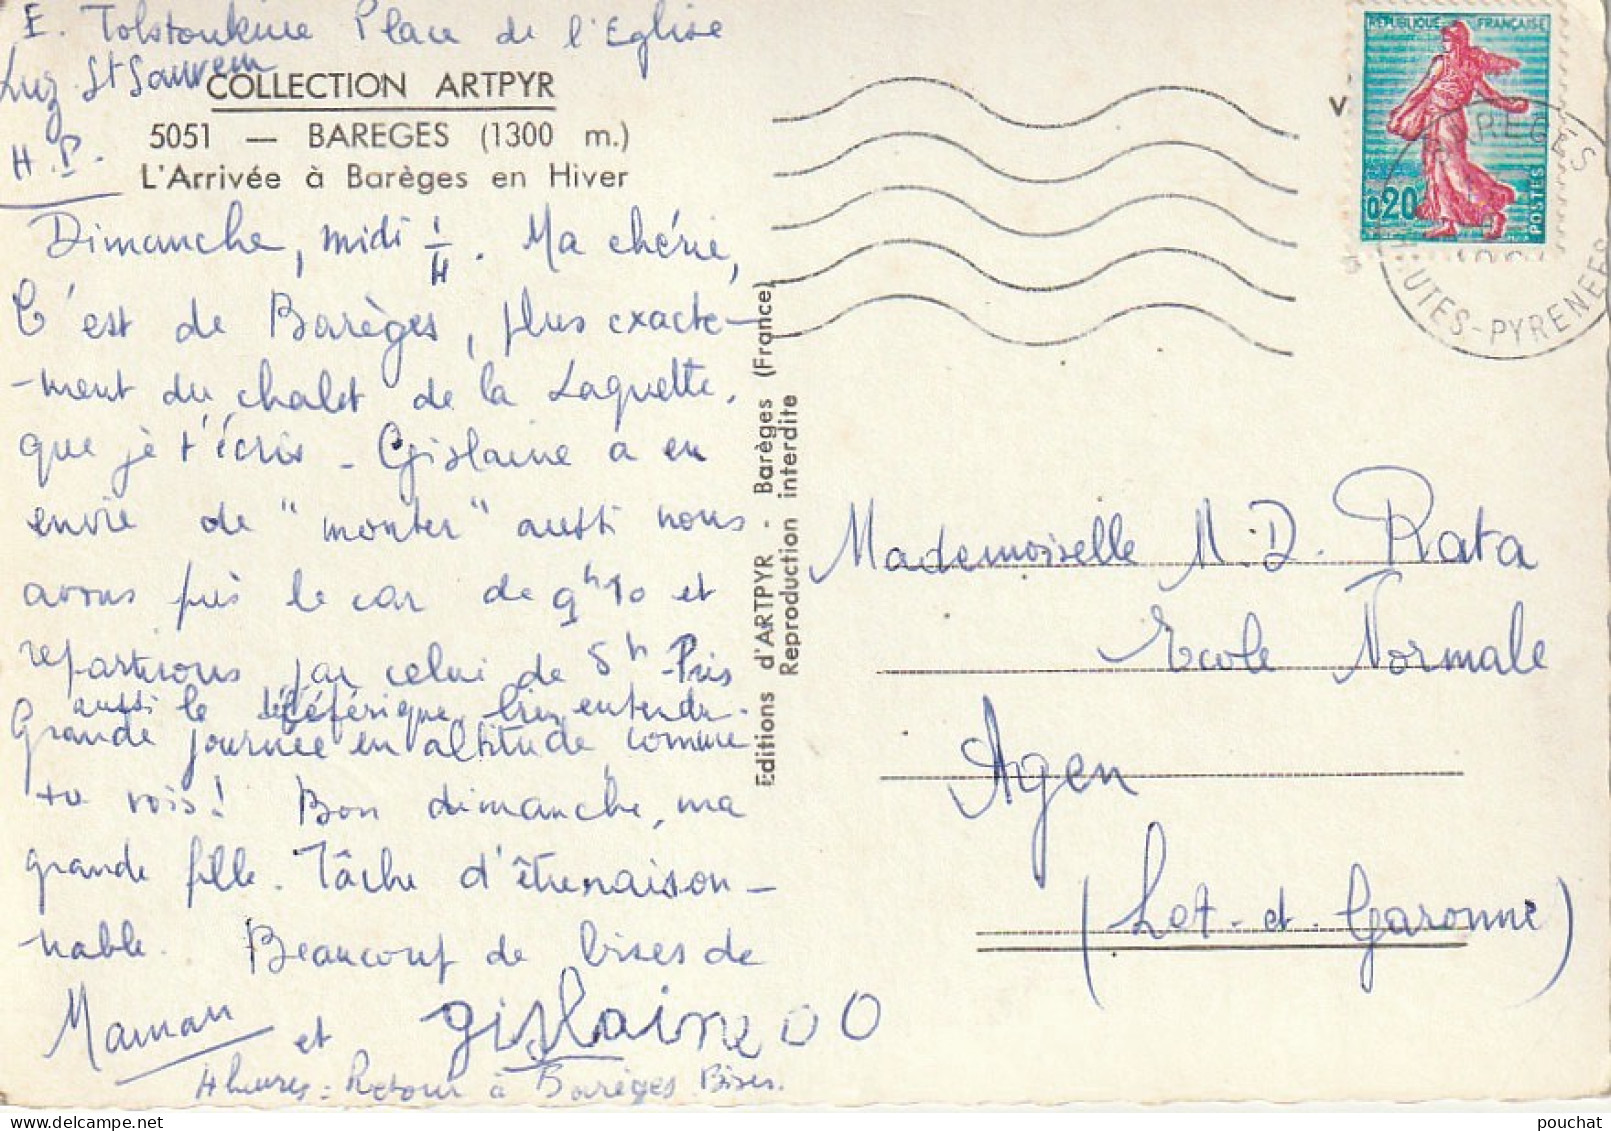 E. Tolstoukine Place de l'Eglise
Luz St Sauveur
H.P.
COLLECTION ARTPYR
5051 — BAREGES (1300 m.)
L'Arrivée à Barèges en Hiver
Dimanche, midi 1/4. Ma chérie,
C'est de Barèges, plus exacte-
-ment du chalet de la Laquette,
que je t'écris - Gislaine a eu
envie de "monter" aussi nous
avons pris le car de 9h10 et
repartirons par celui de 5h - Pris
aussi le téléférique, bien entendu.
Grande journée en altitude, comme
tu vois! Bon dimanche, ma
grande fille. Tâche d'être raison-
-nable. Beaucoup de bises de
Maman et gislaine OO
4 heures = Retour à Barèges. Bises.
Editions d'ARTPYR - Barèges (France)
Reproduction interdite
REPUBLIQUE FRANÇAISE
0,20
POSTES
BAREGES
HAUTES-PYRENEES
Mademoiselle M.D. Rata
Ecole Normale
Agen
(Lot-et-Garonne)
pouchat